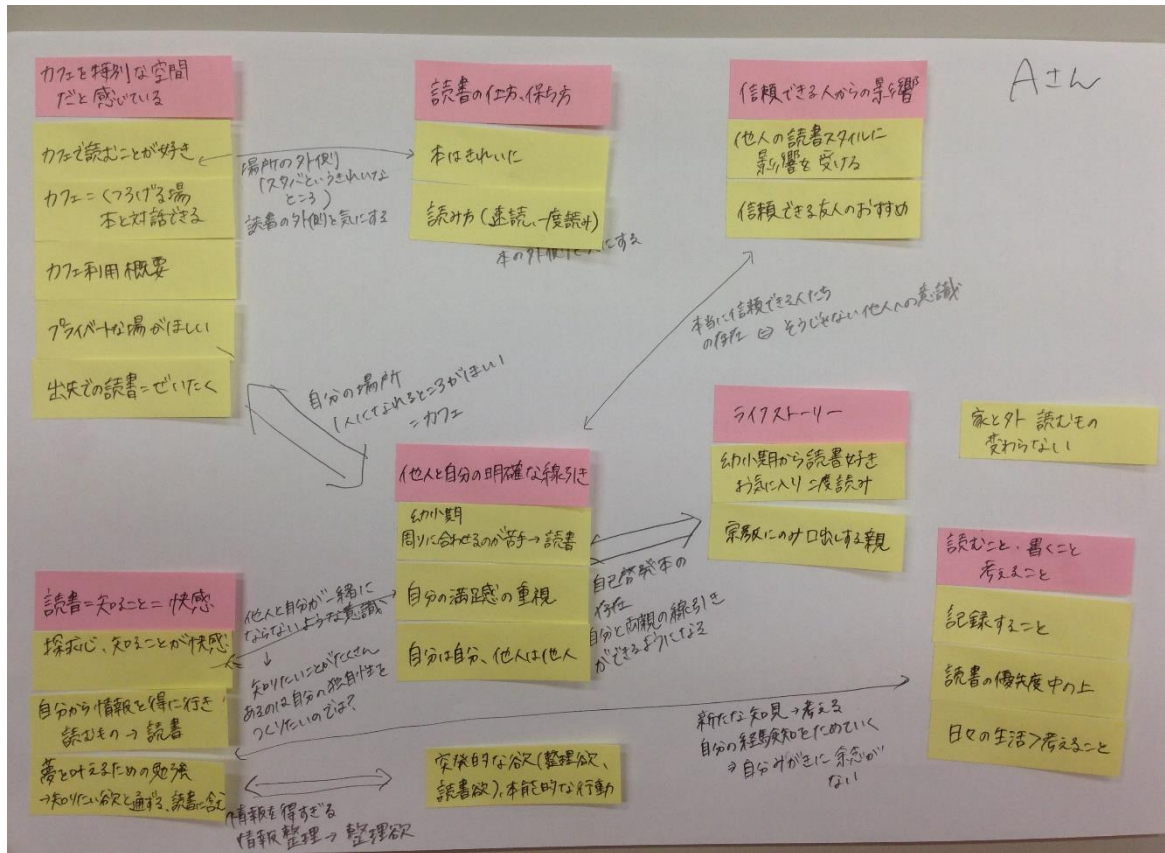 Aさん
カフェを特別な空間
だと感じている
カフェで読むことが好き
カフェ=くつろげる場
本と対話できる
カフェ利用概要
プライベートな場がほしい
出先での読書=ぜいたく
場所の外側
(スタバというきれいな
ところ)
読書の外側を気にする
読書の仕方、保ち方
本はきれいに
読み方(速読、一度読み)
本の外側を気にする
信頼できる人からの影響
他人の読書スタイルに
影響を受ける
信頼できる友人のおすすめ
本当に信頼できる人たち
の存在 ⇔ そうじゃない他人への意識
自分の場所
1人になれるところがほしい
=カフェ
他人と自分の明確な線引き
幼小期
周りに合わせるのが苦手→読書
自分の満足感の重視
自分は自分、他人は他人
ライフストーリー
幼小期から読書好き
お気に入り二度読み
宗教にのみ口出しする親
自己啓発本の
存在
自分と両親の線引き
ができるようになる
家と外 読むもの
変わらない
読書=知ること=快感
探求心、知ることが快感
自分から情報を得に行き
読むもの→読書
夢を叶えるための勉強
→知りたい欲と通ずる、読書に含む
他人と自分が一緒に
ならないような意識
↓
知りたいことがたくさん
あるのは自分の独自性を
つくりたいのでは?
突発的な欲(整理欲、
読書欲)、本能的な行動
情報を得すぎる
情報整理→整理欲
読むこと、書くこと
考えること
記録すること
読書の優先度中の上
日々の生活>考えること
新たな知見→考える
自分の経験知をためていく
⇒自分みがきに余念が
ない